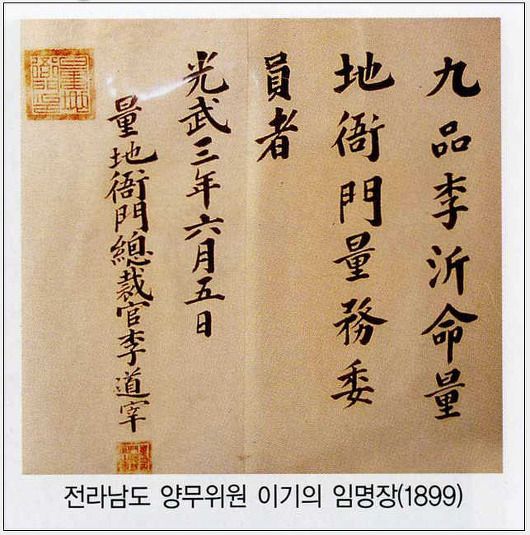 九品李沂命量
地衙門量務委
員者
光武三年六月五日
量地衙門總裁官李道宰
전라남도 양무위원 이기의 임명장(1899)